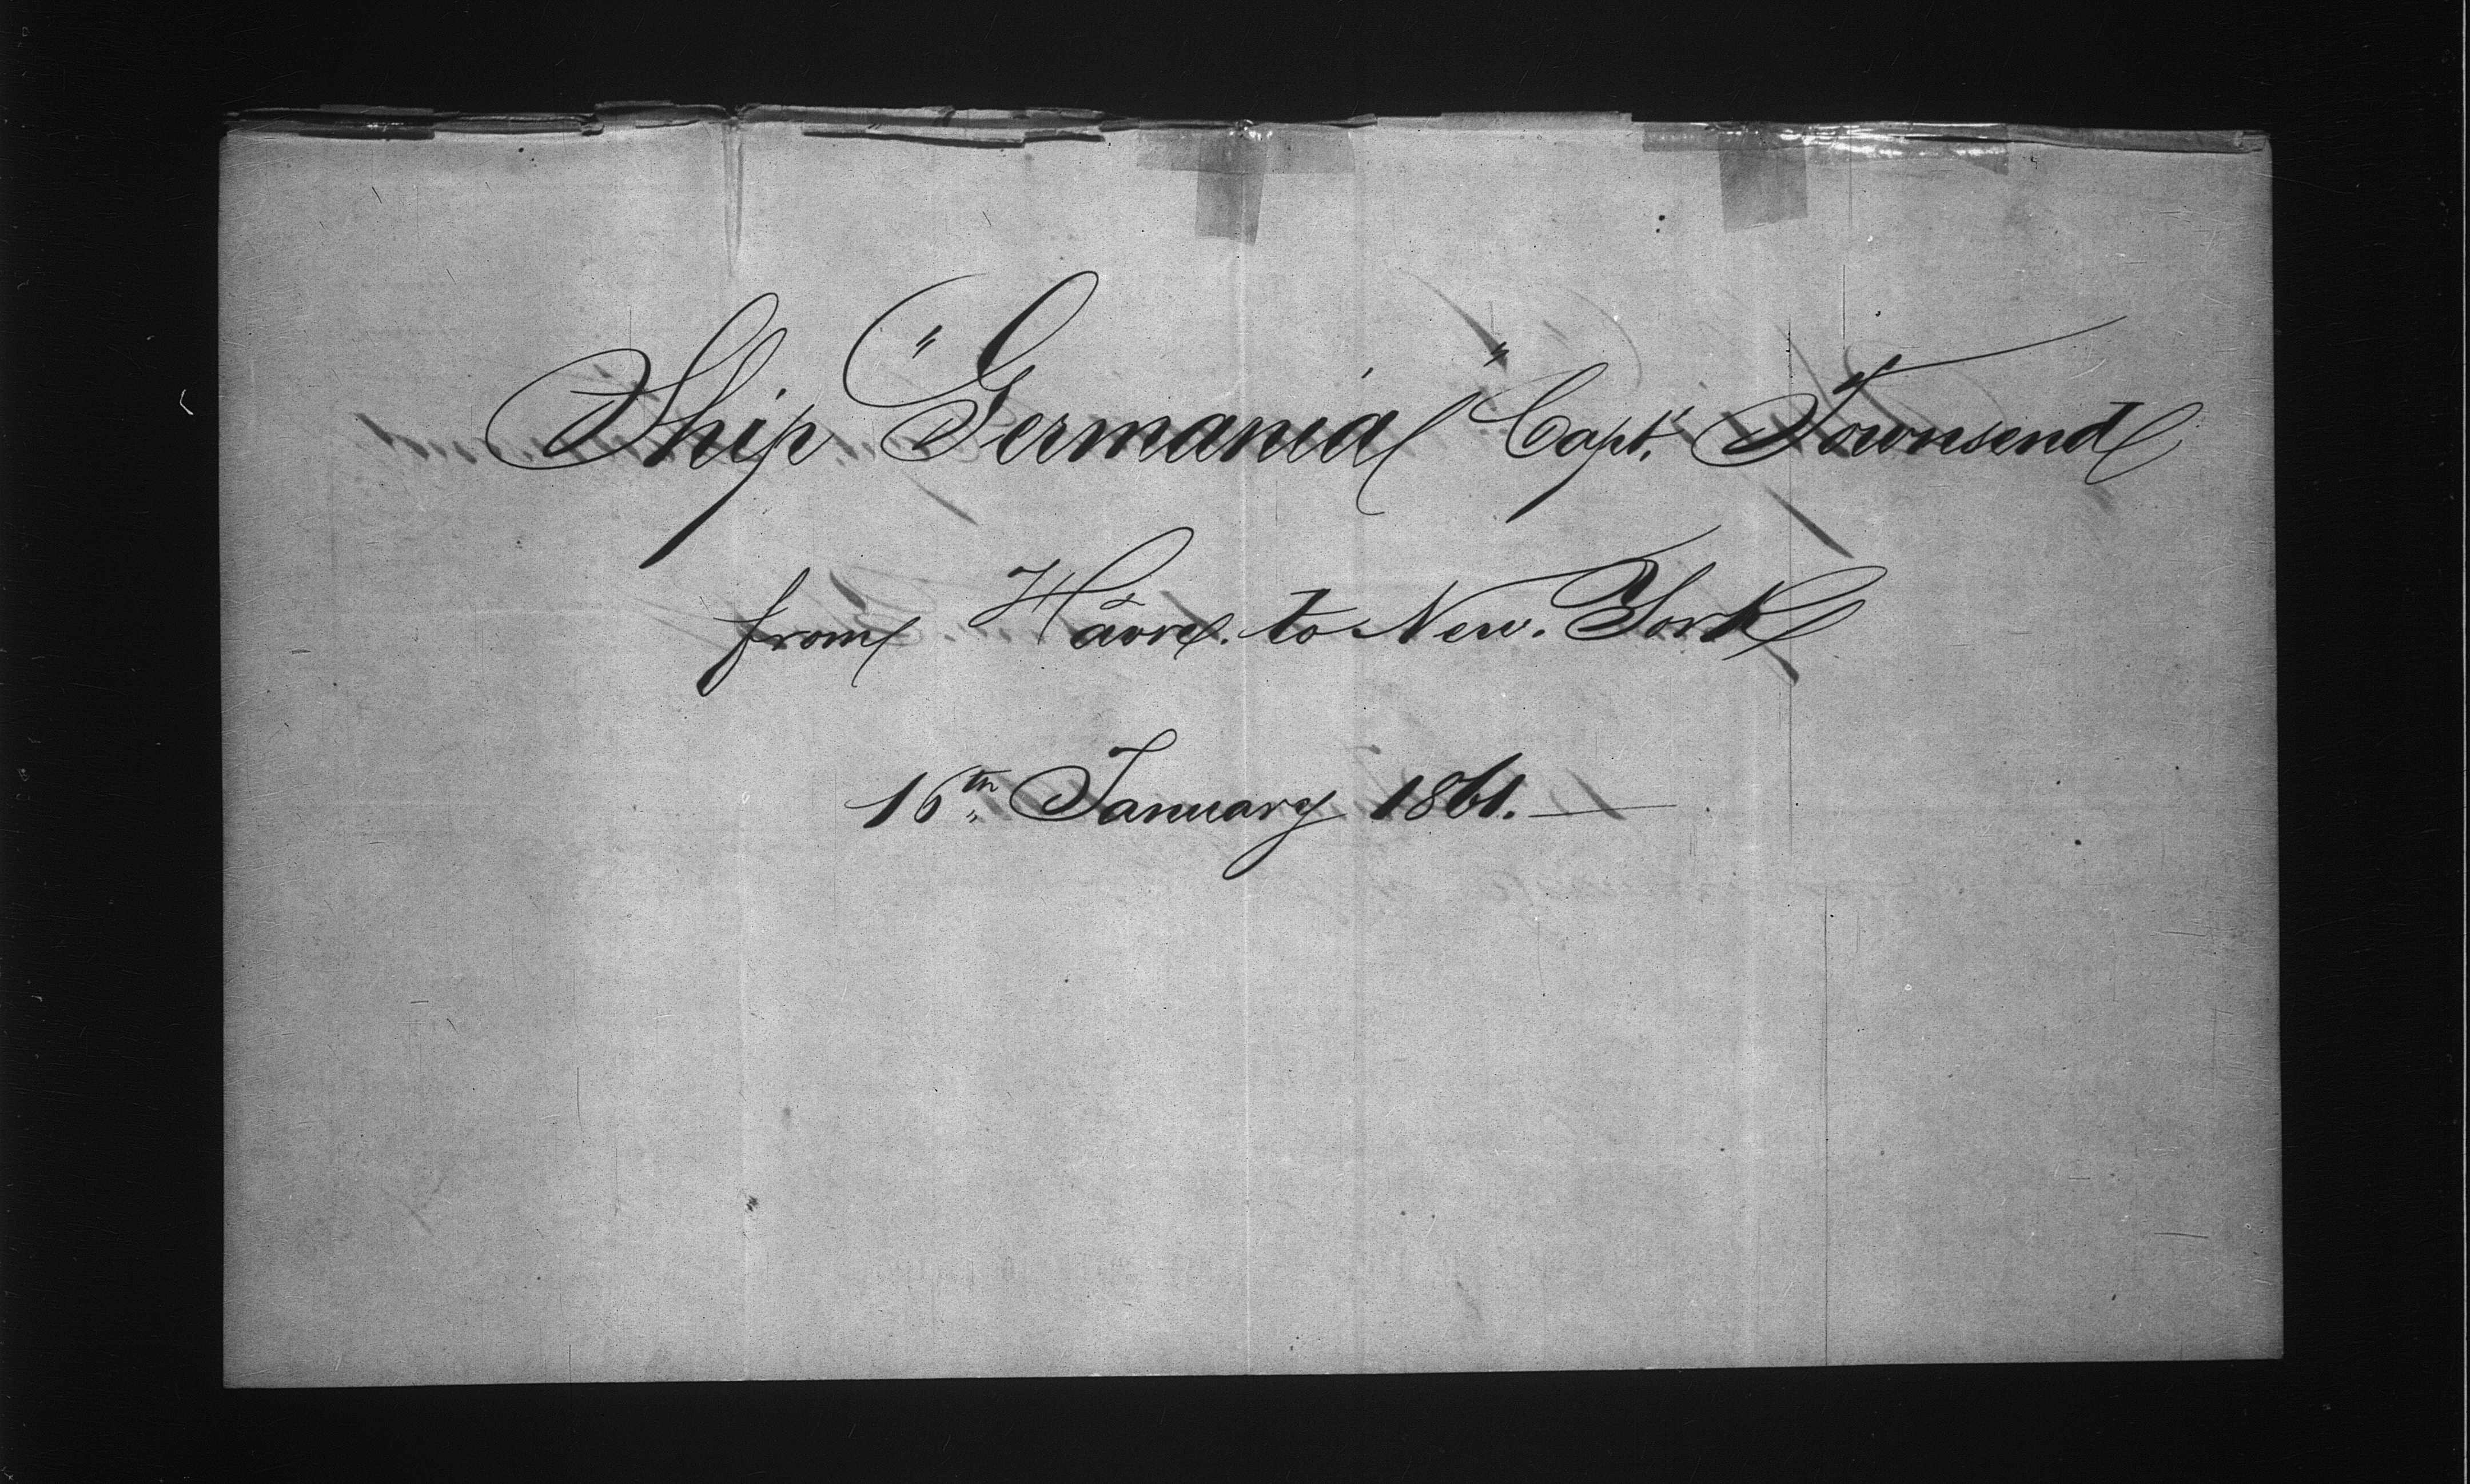 Ship "Germania" Capt. Townsend
from Hâvre. to New. York
16th January 1861.